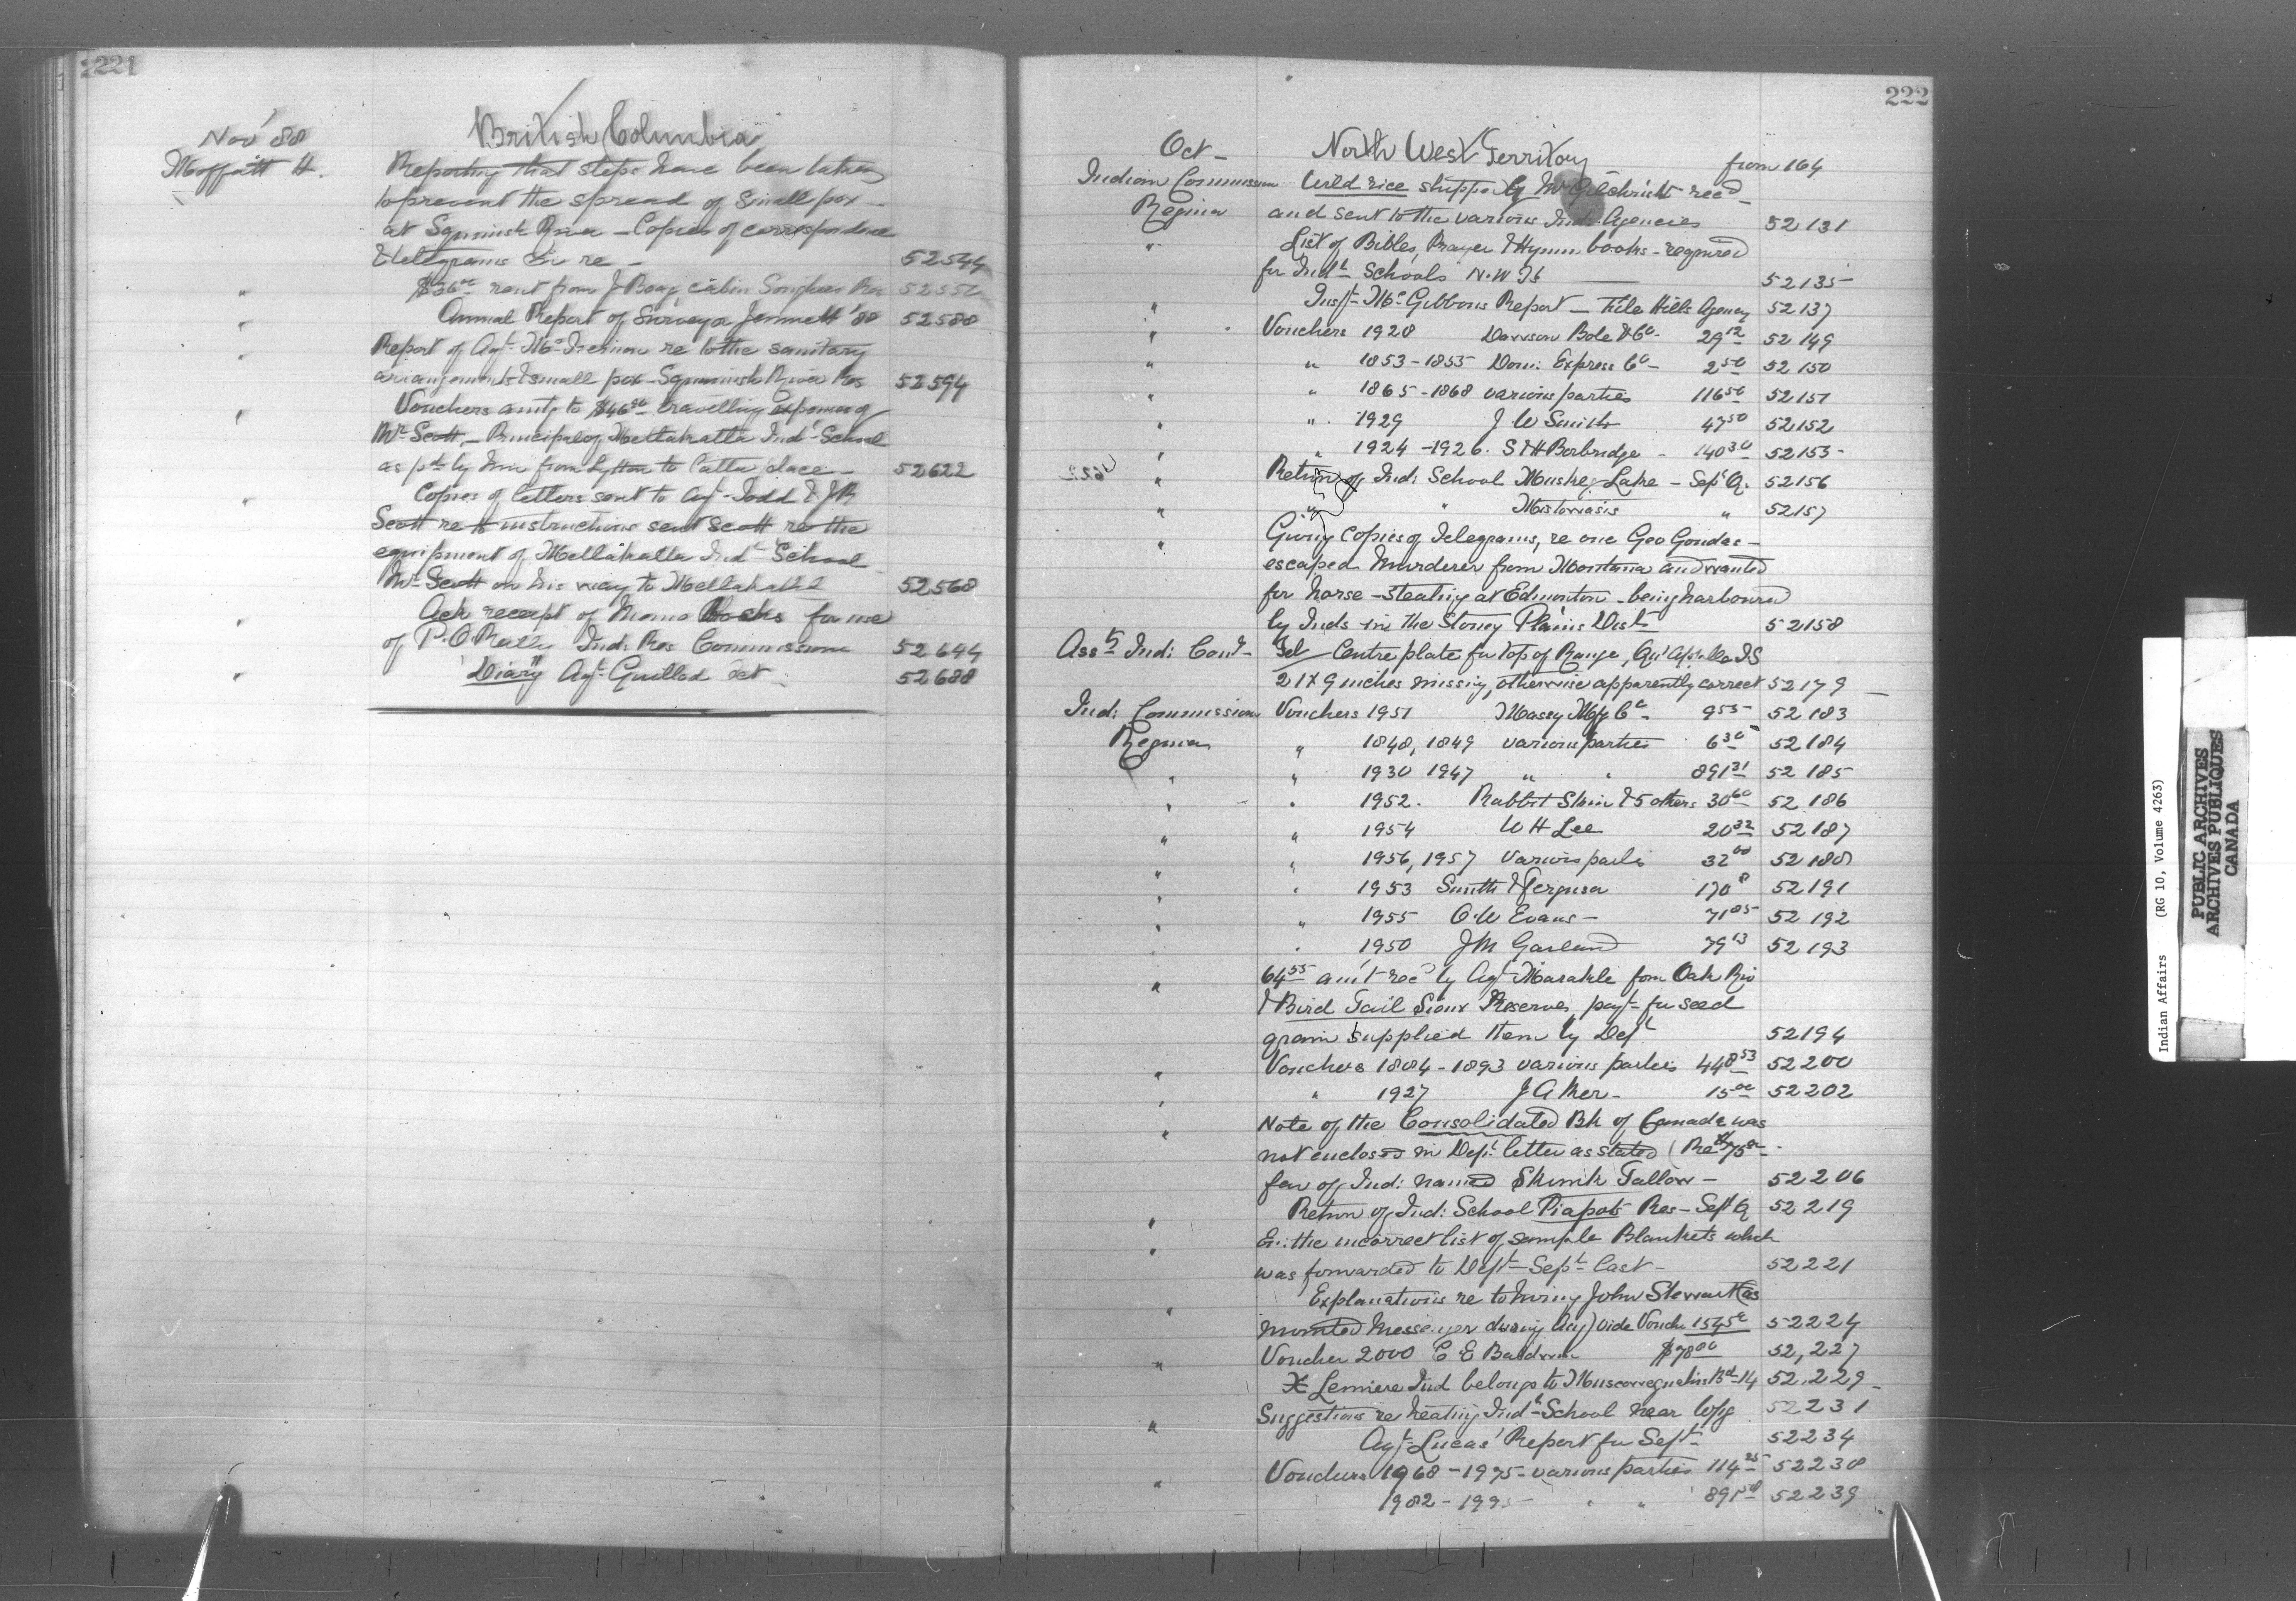 221
British Columbia
Nov' 88
Moffatt H.
Reporting that steps have been taken
to prevent the spread of Small pox -
at Squmish River - Copies of correspondence
& telegrams in re - 52544
" rent from J Boag cabin Songhees Res
" Annual Report of Surveyor Jemmett '88 52588
" Report of Agt. re to the sanitary
arrangements & small pox - Squmish River Res 52594
" Vouchers amtg to travelling expenses of
Mr Scott - Principal of Metlakatla Indl School
as pd by him from Lytton to latter place - 52622
" Copies of letters sent to Agt Todd & J R
Scott re to instructions sent Scott re the
equipment of Metlakatla Indl School
Mr Scott on his way to Metlakatla 52568
" Ack receipt of Memo Books for use
of P. O'Reilly Ind: Res Commission 52644
" Diary Agt Guillod Oct 52688
222
Oct - North West Territory from 164
Indian Commission Wild rice shipped by Mr Gilchrist recd -
Regina and sent to the various Ind. Agencies 52131
" List of Bibles, Prayer & Hymn books - required
for Indl Schools N.W.Ts 52135
" Inspt McGibbons Report - File Hills Agency 52137
" Vouchers 1928 Dawson Bole & Co - 29 12 52149
" " 1853-1855 Dom: Express Co - 2 50 52150
" " 1865-1868 various parties 116 50 52151
" " 1929 J W Smith 47 50 52152
" " 1924-1926. S & H Borbridge - 140 30 52153
" Return of Ind: School Muskeg Lake - Sept Q. 52156
" " " Mistowasis " 52157
" Giving copies of Telegrams, re one Geo
escaped Murderer from Montana and wanted
for horse-stealing at Edmonton - being harboured
by Inds in the Stoney Plains Dist 52158
Asst Ind: Comr - Tel Centre plate for top of Range, Qu'Appelle I S
21 x 9 inches missing, otherwise apparently correct 52179
Ind: Commission Vouchers 1951 Massey Mfg Co - 9 55 52183
Regina " 1848, 1849 various parties 6 30 52184
" " 1930 1947 " " 891 31 52185
" " 1952. Rabbit Skin & 5 others 30 60 52186
" " 1954 W H Lee 20 32 52187
" " 1956, 1957 Various parties 32 00 52188
" " 1953 Smith & Ferguson 170 8 52191
" " 1955 O. W Evans - 71 85 52192
" " 1950 J M Garland 79 13 52193
" 64 55 am't rec'd by Agt Markle from Oak Riv
& Bird Tail Sioux Reserves, payt for seed
grain supplied them by Dept 52194
" Vouchers 1884-1893 various parties 448 53 52200
" " 1927 J A Ker - 15 00 52202
" Note of the Consolidated Bk of Canada was
not enclosed in Dept letter as stated (Re $75 00 -
fav of Ind: named Skunk Tallow - 52206
" Return of Ind: School Piapots Res - Sept Q 52219
" the incorrect list of sample Blankets which
was forwarded to Dept - Sept last - 52221
" Explanations re to hiring John Stewart (as
mounted Messenger during ) vide Vouchr 52224
" Voucher 2000 C E Baldwin $78 00 52,227
X Ind belongs to Bd 14 52,229
" Suggestions re heating Indl School near Wpg 52231
Agt Lucas' Report for Sept 52234
" Vouchers 1968-1975 - various parties 114 25 52238
1982-1995 " " 52239
Indian Affairs (RG 10, Volume 4263)
PUBLIC ARCHIVES
ARCHIVES PUBLIQUES
CANADA